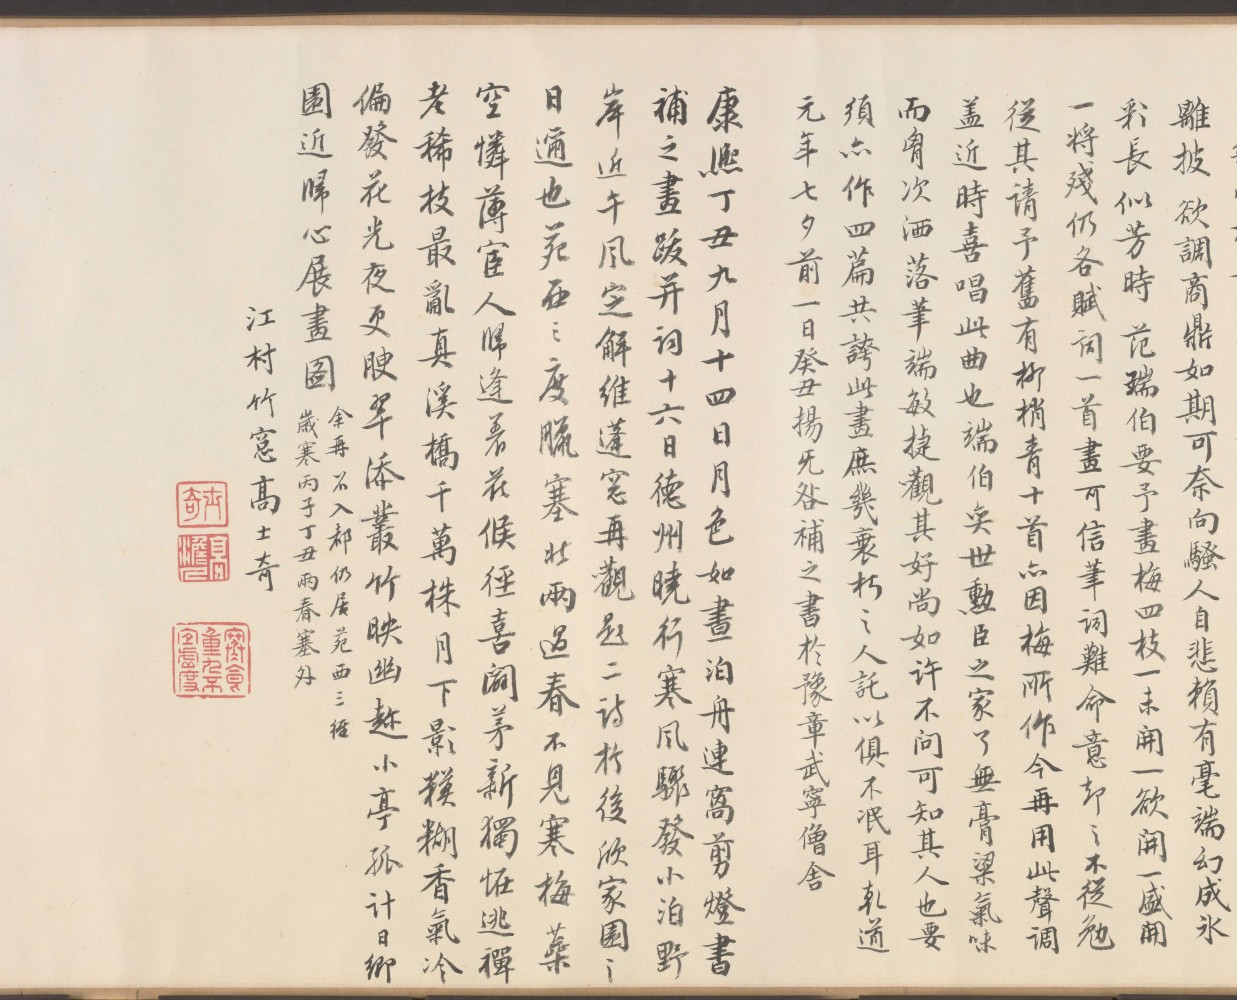 雕披欲調商鼎如期可奈向騷人自悲賴有毫端幻成氷
彩長似芳時 范端伯要予畫梅四枝一未開一欲開一盛開
一将殘仍各賦詞一首畫可信筆詞難命意却之不從勉
從其請予舊有柳梢青十首亦因梅所作今再用此聲調
盖近時喜唱此曲也端伯奕世勳臣之家了無膏粱氣味
而胷次洒落筆端敏捷觀其好尚如許不問可知其人也要
須亦作四篇共誇此畫庶幾衰朽之人託以俱不泯耳乾道
元年七夕前一日癸丑揚无咎補之書於豫章武寧僧舍
康熙丁丑九月十四日月色如晝泊舟連窩剪燈書
補之畫跋并詞十六日德州曉行寒風驟發小泊野
岸近午風定解維蓬窓再觀題二詩於後欣家園之
日邇也苑西三度臘塞北兩過春不見寒梅蘂
空憐薄宦人歸逢着花候徑喜闢茅新獨恠逃禪
老稀枝最亂真溪橋千萬株月下影糢糊香氣冷
偏發花光夜更腴翠添叢竹映幽趂小亭孤計日鄉
園近歸心展畫圖余再召入都仍居苑西三经
歲寒丙子丁丑兩春塞外
江村竹窓高士奇